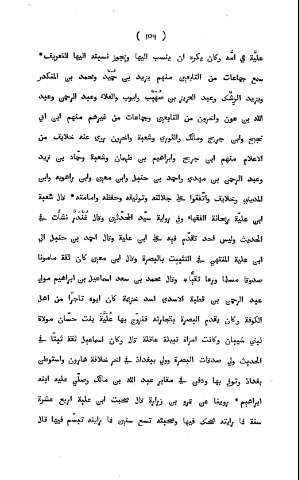 ( ١٥٩ )
علية في امه وكان يكره ان ينسب اليها ويجوز نسبته اليها للتعريف *
سمع جماعات من التابعين منهم يزيد بن حميد ومحمد بن المنكدر
ويزيد الرشك وعبد العزيز بن صهيب وايوب والعلاء وعبد الرحمن وعبد
الله بن عون واخرون من التابعين وجماعات من غيرهم منهم ابن ابي
نجيح وابن جريج ومالك والثوري وشعبة واخرون روى عنه خلايف من
الاعلام منهم ابن جريج وابراهيم بن طهمان وشعبة وحماد بن زيد
وعبد الرحمن بن مهدي واحمد بن حنبل وابن معين وابن راهويه وابن
المديني وخلايف واتفقوا على جلالته وتوثيقه وحفظه وامامته * قال شعبة
ابن علية ريحانة الفقهاء وفي رواية سيد المحدثين وقال غندر نشأت في
الحديث وليس احد تقدم فيه على ابن علية وقال احمد بن حنبل الى
ابن علية المنتهى في التثبت بالبصرة وقال ابن معين كان ثقة مامونا
صدوقا مسلما ورعا تقيا * وقال محمد بن سعد اسماعيل بن ابراهيم مولى
عبد الرحمن بن قطبة الاسدي اسد خزيمة كان ابوه تاجرا من اهل
الكوفة وكان يقدم البصرة بتجارته فتزوج بها علية بنت حسان مولاة
لبني شيبان وكانت امراة نبيلة عاقلة قال وكان اسماعيل ثقة ثبتا في
الحديث ولى صدقات البصرة وولى ببغداد في اخر خلافة هارون واستوطن
بغداد وتوفي بها ودفن في مقابر عبد الله بن مالك وصلى عليه ابنه
ابراهيم * روينا عن عمرو بن زرارة قال صحبت ابن علية اربع عشرة
سنة فما رايته ضحك فيها وصحبته تسع سنين فما رايته تبسم فيها قال